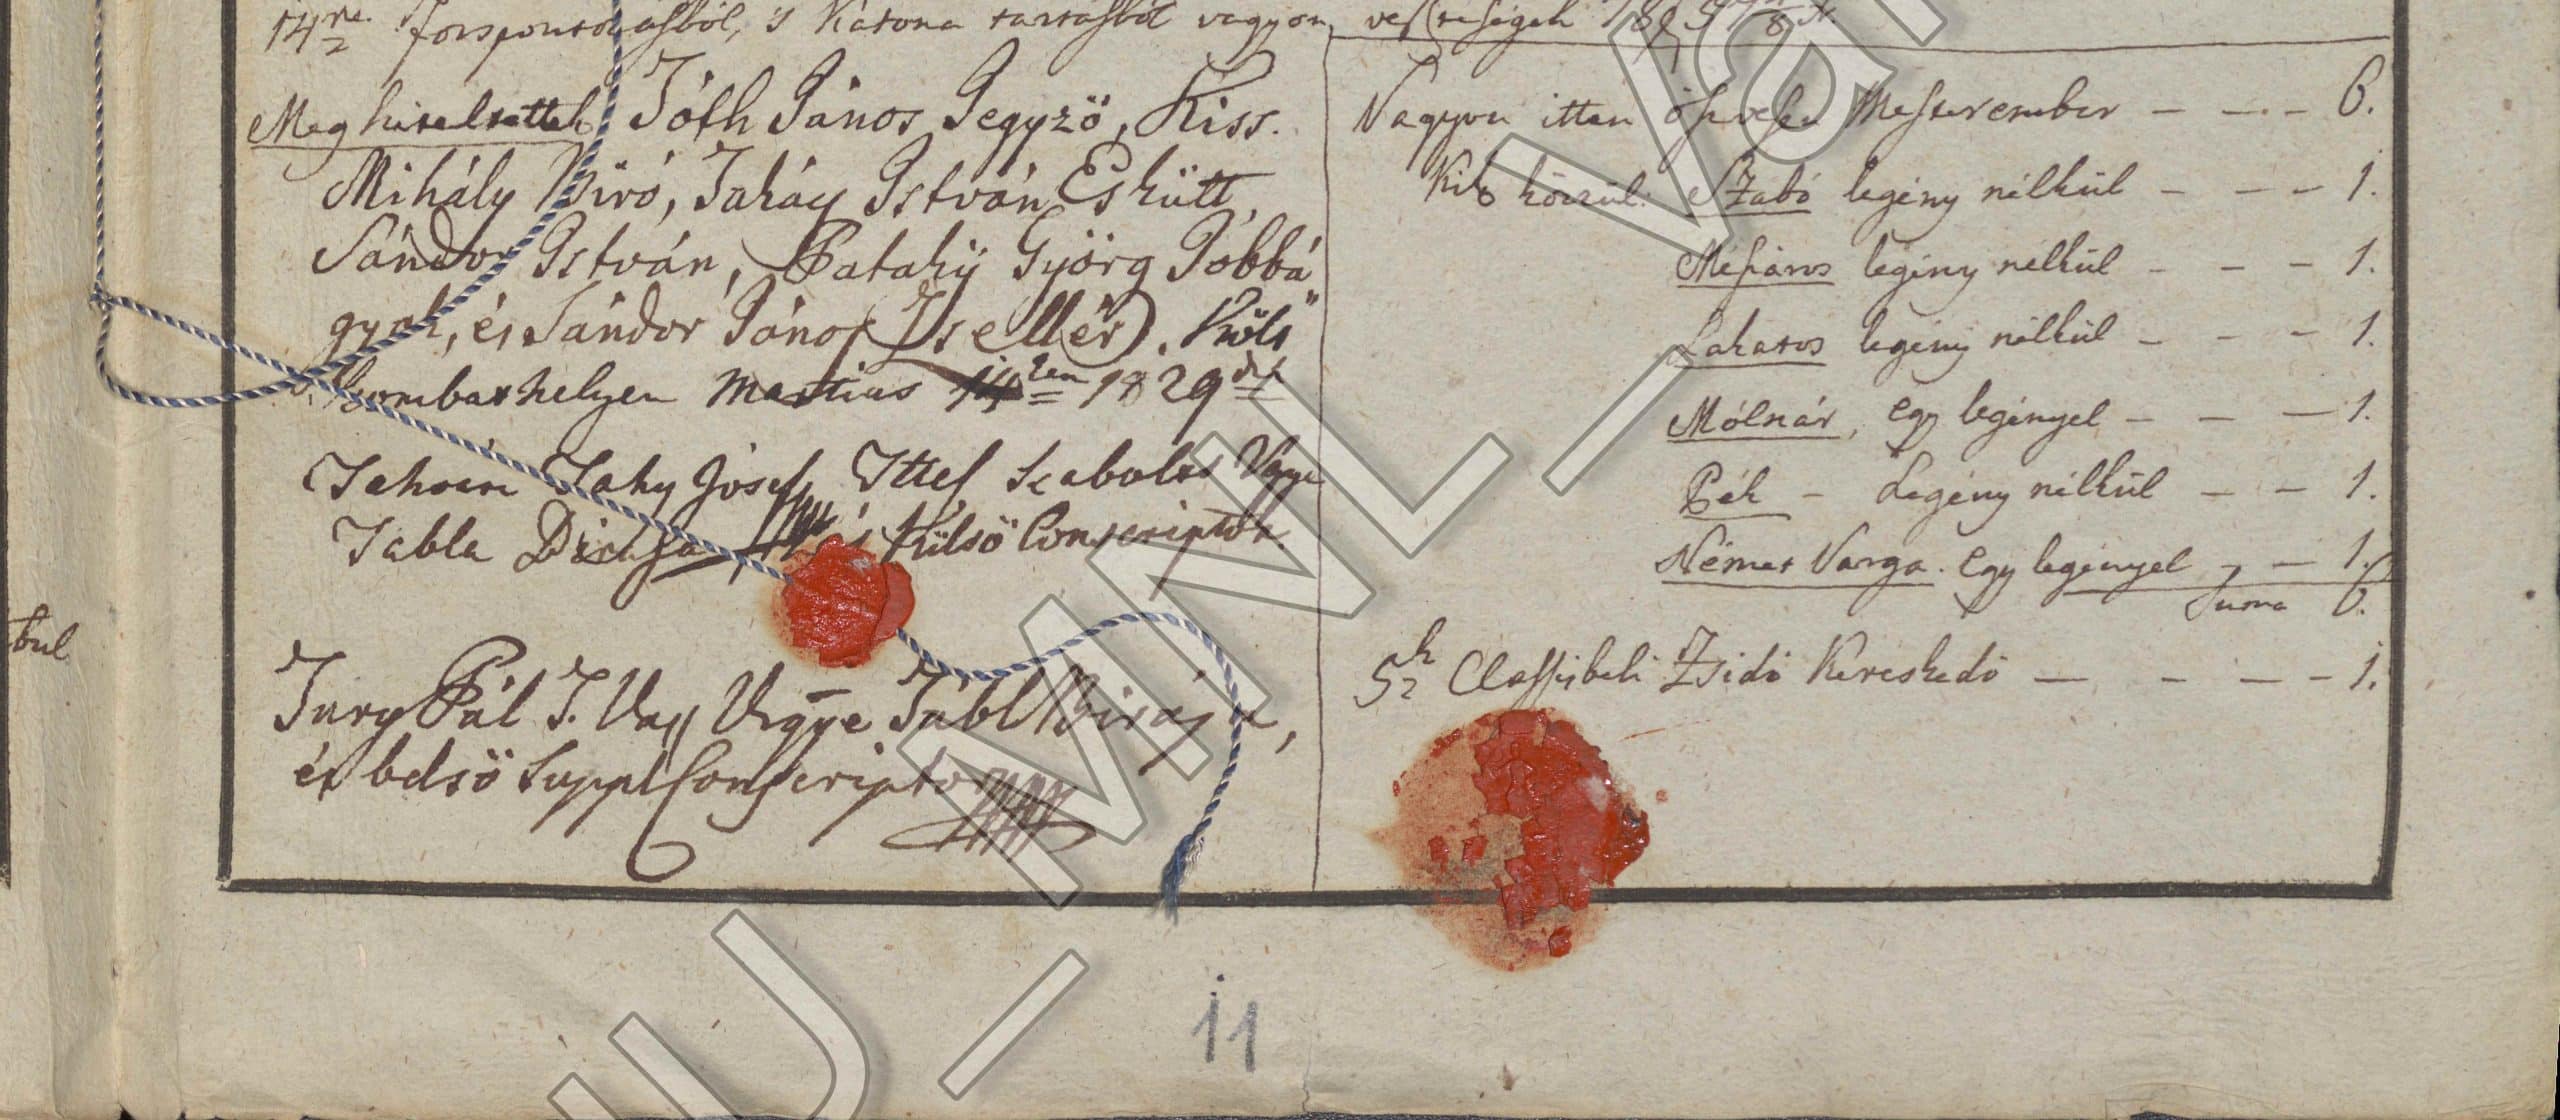 14re Forspontozásból, 's Katona tartásból vagyon veszteségek
Meg hiteltettek Tóth János Jegyző, Kiss.
Mihály Biró, Takáy István Eskütt,
Sándor István, Pataky Györg Jobbá"
gyok, és Sándor János Zsellér. Kőls"
Szombathelyen Martius 14ken 1829dik
Jósef Ittes Szabolts Vgye
Tabla és Külső Conscriptor.
Jury Pál T. Vass Vrgye Tábl Birája,
és belső Suppl Conscriptor
Vagyon itten öszvesen Mesterember - - - 6.
Kik közzül: Szabó legény nélkül - - - 1.
Mészáros legény nélkül - - - 1.
Lakatos legény nélkül - - - 1.
Mólnár, egy legényel - - - 1.
Pék - Legény nélkül - - 1.
Német Varga. egy legényel - - 1.
Suma 6.
5k Classisbeli Zsidó Kereskedő - - - - 1.
11
bul
HU_MNL_Va